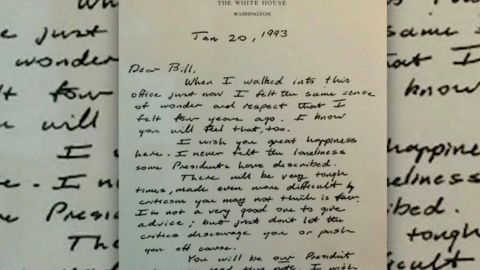 THE WHITE HOUSE
WASHINGTON
Jan 20, 1993
Dear Bill,
When I walked into this
office just now I felt the same sense
of wonder and respect that I
felt four years ago. I know
you will feel that, too.
I wish you great happiness
here. I never felt the loneliness
some Presidents have described.
There will be very tough
times, made even more difficult by
criticism you may not think is fair.
I'm not a very good one to give
advice; but just don't let the
critics discourage you or push
you off course.
You will be our President
read this note. I wish
just
wonder
four
will
I
I
Presi
same
that I
know
happine
difficult